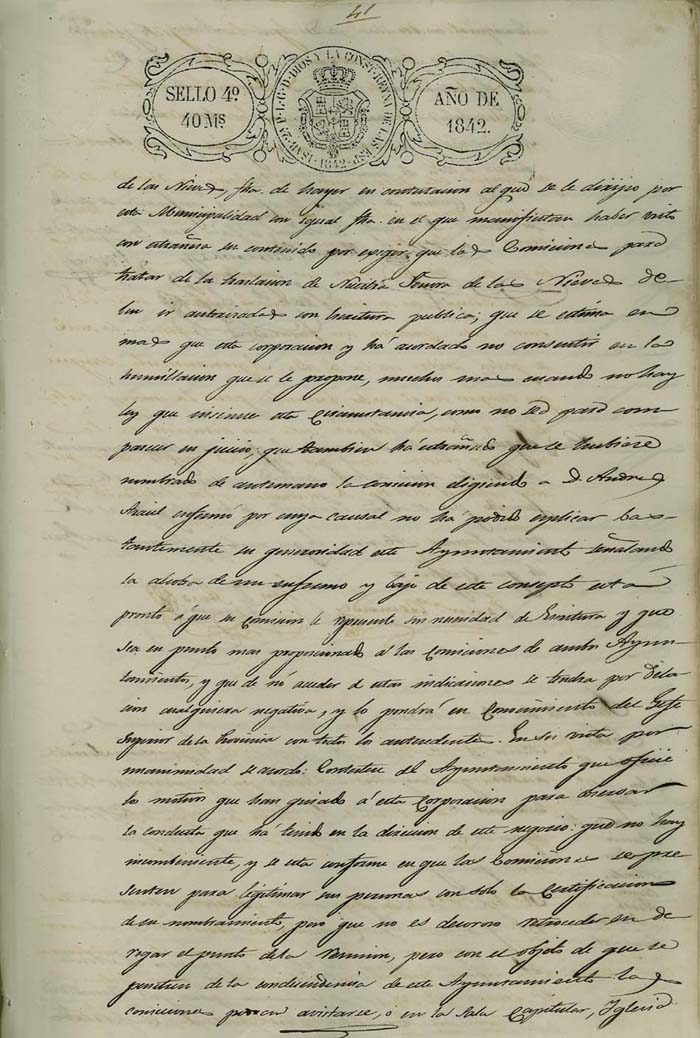 41
SELLO 4º
40 Mˢ
ISAB. 2ª P. L. G. D. DIOS Y LA CONST. REYNA DE LAS ESP. 1842.
AÑO DE
1842.
de las Nieves, fha. de hayer en contestacion al que se le dirijio por
esta Municipalidad con igual fha. en el que manifiestan haber visto
con estrañeza su contenido por exigir que las Comiciones para
tratar de la traslacion de Nuestra Señora de las Nieves de-
ben ir autorizadas con Escritura publica; que se estima en
mas que esta corporacion y há acordado no consentir en la
humillacion que se le propone, mucho mas cuando no hay
ley que incinue esta Circunstancia, como no sea para com-
parecer en juicio; que tambien há estrañado que se hubiese
nombrado de antemano la comicion eligiendo a D. Andres
enfermo por cuya causal no há podido esplicar bas-
tantemente su generosidad este Ayuntamiento señalando
la alcoba de un enfermo y bajo de este consepto está
pronto á que su Comicion le represente sin necesidad de Escritura y que
sea en punto mas proporcionado á las Comiciones de ambos Ayun-
tamientos, y que de no acceder a estas indicaciones se tendra por dila-
cion cualquiera negativa, y lo pondrá en Conocimiento del Gefe
Superior de la Provincia con todos los antecedentes. En su vista por
unanimidad se acordó: Contestar al Ayuntamiento que oficie
los motivos que han guiado á esta Corporacion para
la conducta que há tenido en la direccion de este negocio: que no hay
incombeniente, y se esta conforme en que las Comiciones se pre
senten para legitimar sus personas con solo la Certificacion
de su nombramiento, pero que no es decoroso retroceder en de
rogar el punto de la reunion, pero con el objeto de que se
penetren de la condecendencia de este Ayuntamiento las
comiciones podran avistarse, ó en la Sala Capitular, Iglecia